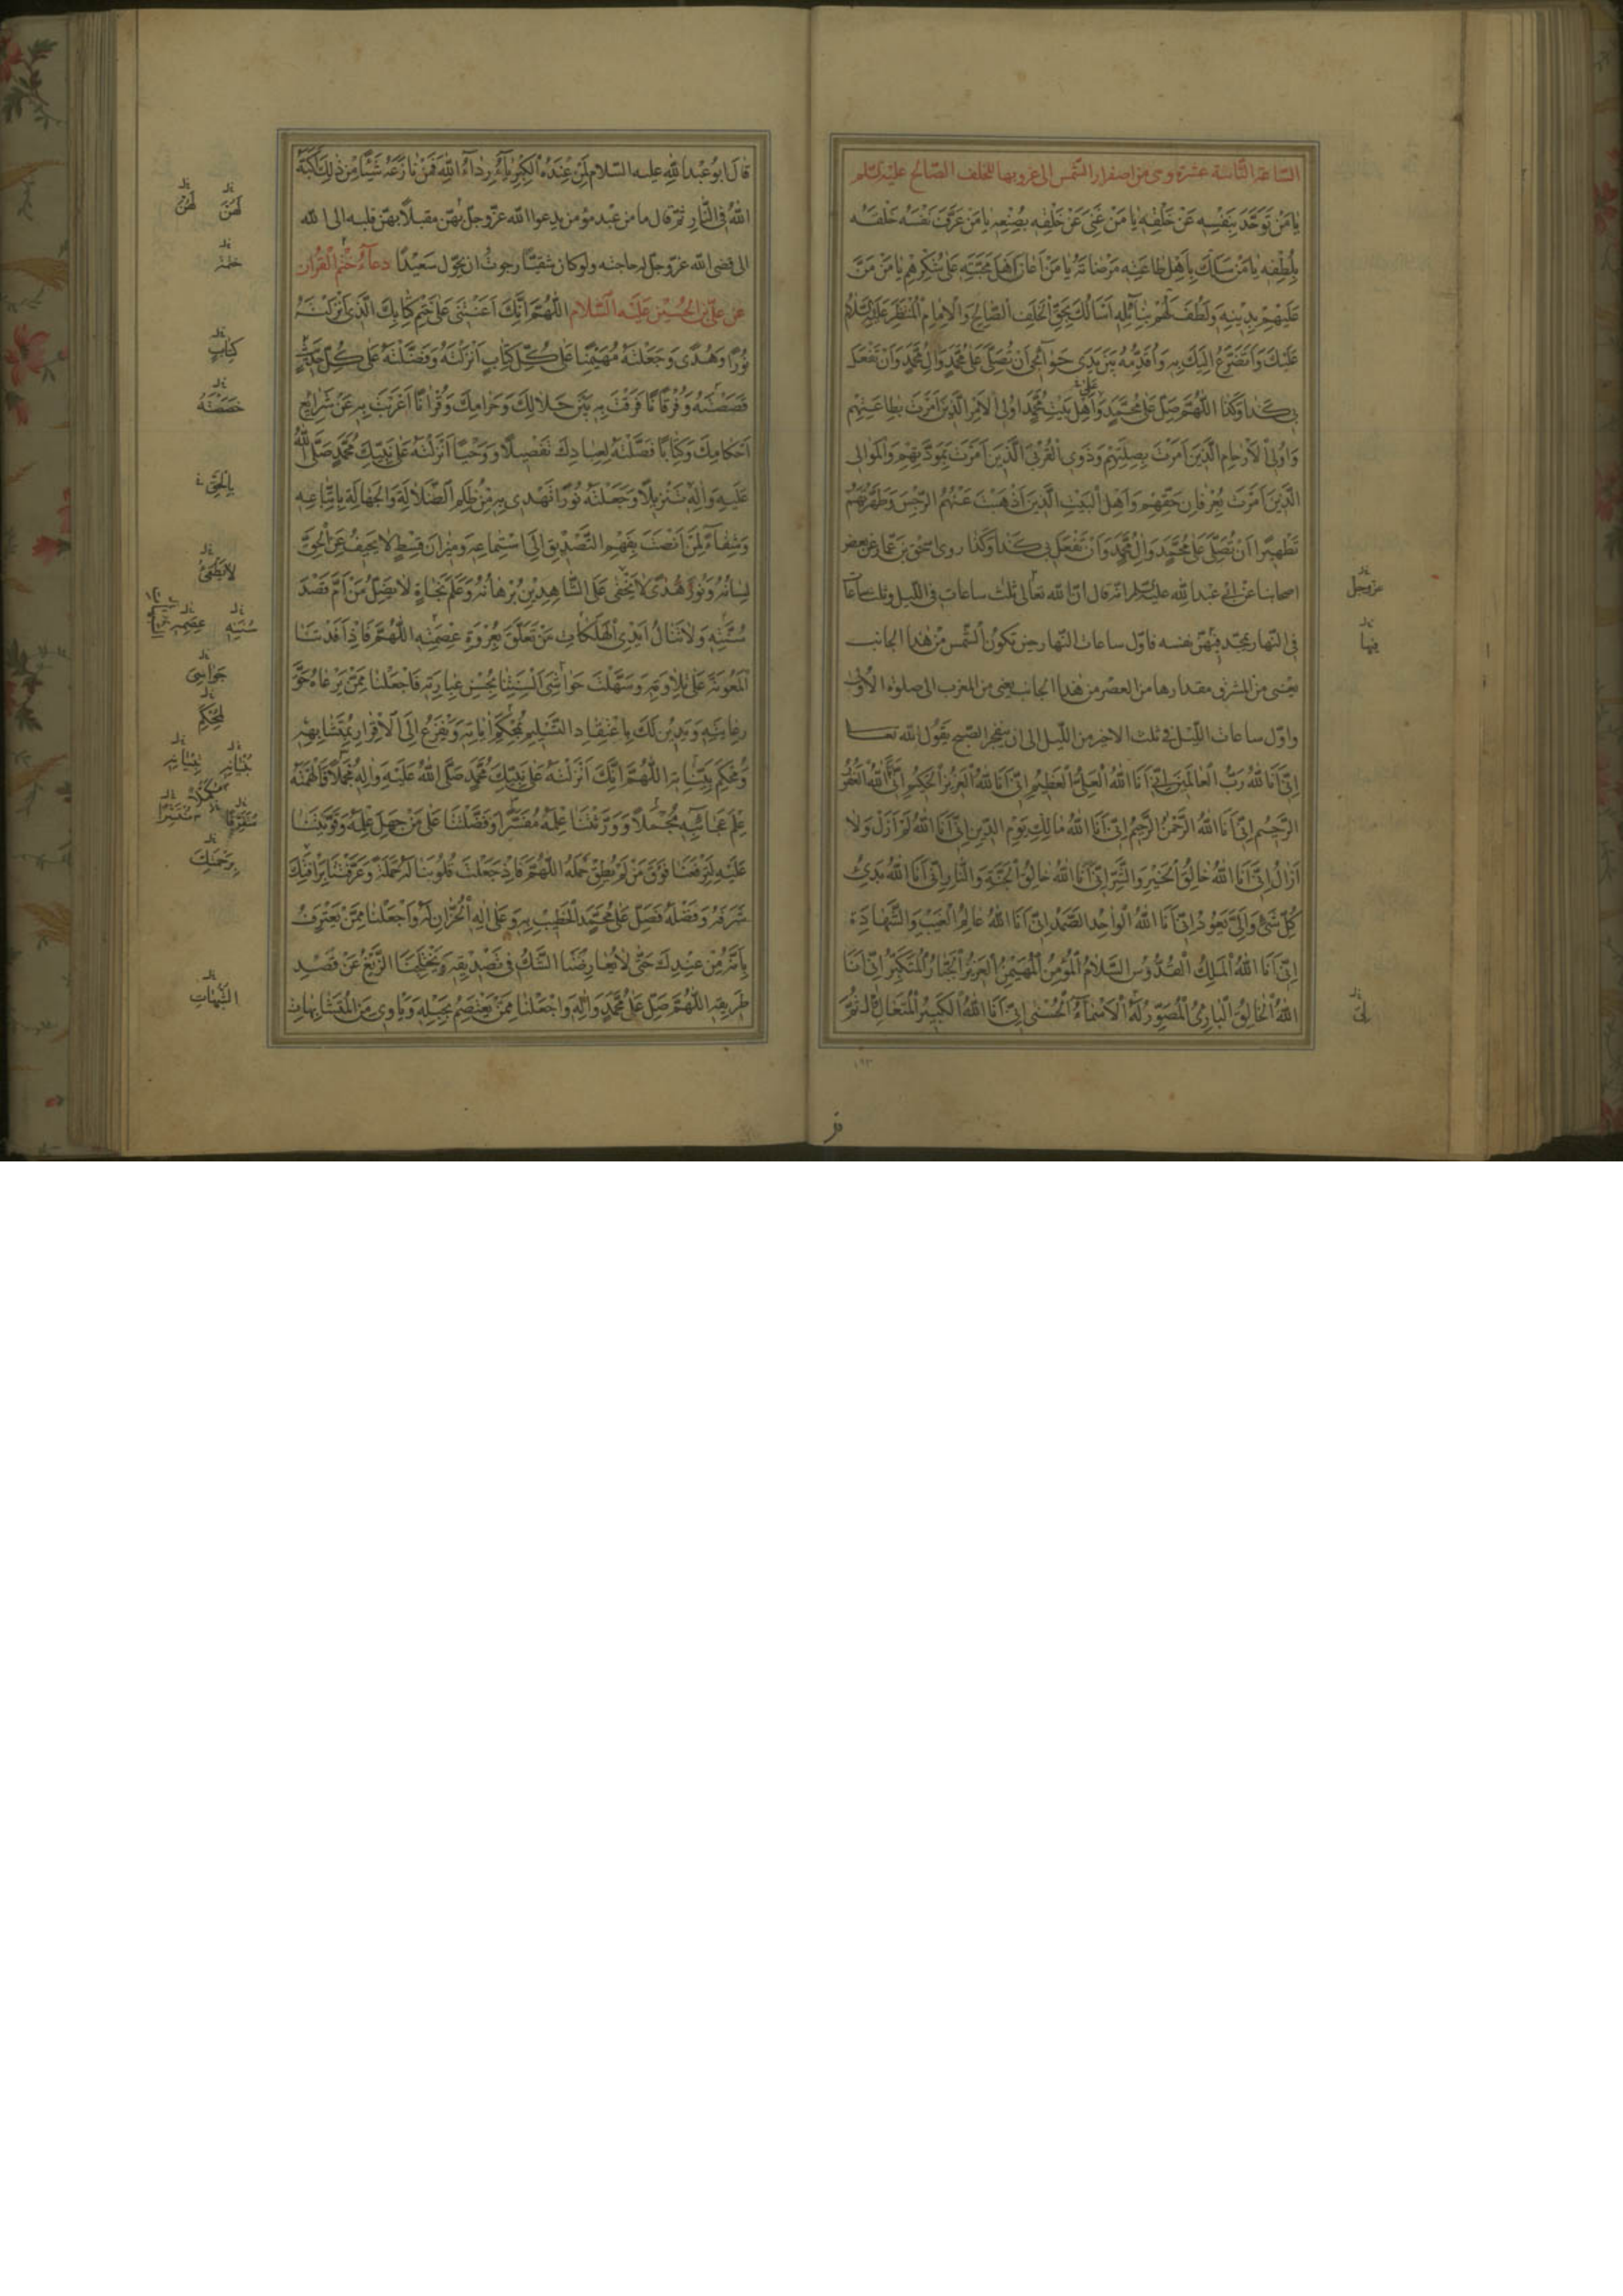 الساعة الثانية عشرة وهي من اصفرار الشمس الى غروبها للخلف الصالح عليه السلم
يا مَنْ تَوَحَّدَ بِنَفْسِهِ عَنْ خَلْقِهِ يا مَنْ غَنِيَ عَنْ خَلْقِهِ بِصُنْعِهِ يا مَنْ عَرَّفَ نَفْسَهُ خَلْقَهُ
بِلُطْفِهِ يا مَنْ سَلَكَ بِاَهْلِ طاعَتِهِ مَرْضاتَهُ يا مَنْ اَعانَ اَهْلَ مَحَبَّتِهِ عَلى شُكْرِهِ يا مَنْ مَنَّ
عَلَيْهِمْ بِدِينِهِ وَلَطُفَ لَهُمْ بِنائِلِهِ اَسْأَلُكَ بِحَقِّ الْخَلَفِ الصّالِحِ وَالْاِمامِ الْمُنْتَظَرِ عَلَيْهِ السَّلامُ
عَلَيْكَ وَاَتَضَرَّعُ اِلَيْكَ بِهِ وَاُقَدِّمُهُ بَيْنَ يَدَيْ حَوآئِجي اَنْ تُصَلِّيَ عَلى مُحَمَّدٍ وَالِ مُحَمَّدٍ وَاَنْ تَفْعَلَ
بي كَذا وَكَذا اللّهُمَّ صَلِّ عَلى مُحَمَّدٍ وَعَلى اَهْلِ بَيْتِ مُحَمَّدٍ اُولِى الْاَمْرِ الَّذينَ اَمَرْتَ بِطاعَتِهِمْ
وَاُولِى الْاَرْحامِ الَّذينَ اَمَرْتَ بِصِلَتِهِمْ وَذَوِى الْقُرْبَى الَّذينَ اَمَرْتَ بِمَوَدَّتِهِمْ وَالْمَوالِى
الَّذينَ اَمَرْتَ بِعِرْفانِ حَقِّهِمْ وَاَهْلِ الْبَيْتِ الَّذينَ اَذْهَبْتَ عَنْهُمُ الرِّجْسَ وَطَهَّرْتَهُمْ
تَطْهيرًا اَنْ تُصَلِّيَ عَلى مُحَمَّدٍ وَالِ مُحَمَّدٍ وَاَنْ تَفْعَلَ بي كَذا وَكَذا روى اسحق بن عمار عن بعض
اصحابنا عن ابي عبد الله عليه السلام انه قال ان الله تعالى ثلث ساعات في الليل وثلث ساعات
في النهار يمجد فيهن نفسه فاول ساعات النهار حين تكون الشمس من هذا الجانب
يعني من المشرق مقدارها من العصر من هذا الجانب يعني من المغرب الى صلوة الاولى
واول ساعات الليل في ثلث الاخير من الليل الى ان ينفجر الصبح يقول الله تعالى
اِنّى اَنَا اللهُ رَبُّ الْعالَمينَ اِنّى اَنَا اللهُ الْعَلِيُّ الْعَظيمُ اِنّى اَنَا اللهُ الْعَزيزُ الْحَكيمُ اِنّى اَنَا اللهُ الْغَفُورُ
الرَّحيمُ اِنّى اَنَا اللهُ الرَّحْمنُ الرَّحيمُ اِنّى اَنَا اللهُ مالِكُ يَوْمِ الدّينِ اِنّى اَنَا اللهُ لَمْ اَزَلْ وَلا
اَزالُ اِنّى اَنَا اللهُ خالِقُ الْخَيْرِ وَالشَّرِّ اِنّى اَنَا اللهُ خالِقُ الْجَنَّةِ وَالنّارِ اِنّى اَنَا اللهُ بَدِئُ
كُلِّ شَيْءٍ وَاِلَيَّ يَعُودُ اِنّى اَنَا اللهُ الْواحِدُ الصَّمَدُ اِنّى اَنَا اللهُ عالِمُ الْغَيْبِ وَالشَّهادَةِ
اِنّى اَنَا اللهُ الْمَلِكُ الْقُدُّوسُ السَّلامُ الْمُؤْمِنُ الْمُهَيْمِنُ الْعَزيزُ الْجَبّارُ الْمُتَكَبِّرُ اِنّى اَنَا
اللهُ الْخالِقُ الْبارِئُ الْمُصَوِّرُ لَهُ الْاَسْمآءُ الْحُسْنى اِنّى اَنَا اللهُ الْكَبيرُ الْمُتَعالِ قال ثُمَّ
عزوجل
فيها
١٩٣
قال ابو عبد الله عليه السلام مِنْ عِنْدِهِ الْكِبْرِيآءُ رِدآءُ اللهِ فَمَنْ نازَعَهُ شَيْئًا مِنْ ذلِكَ كَبَّهُ
اللهُ في النّارِ ثم قال ما من عبد مؤمن يدعوا الله عز وجل بهن مقبلا بهن قلبه الى الله
الى قضى الله عز وجل له حاجته ولو كان شقيا رجوت ان يحول سعيدا دعآء ختم القران
عن علي بن الحسين عليه السلام اللّهُمَّ اِنَّكَ اَعَنْتَنى عَلى خَتْمِ كِتابِكَ الَّذى اَنْزَلْتَهُ
نُورًا وَهُدًى وَجَعَلْتَهُ مُهَيْمِنًا عَلى كُلِّ كِتابٍ اَنْزَلْتَهُ وَفَضَّلْتَهُ عَلى كُلِّ حَديثٍ
قَصَصْتَهُ وَفُرْقانًا فَرَقْتَ بِهِ بَيْنَ حَلالِكَ وَحَرامِكَ وَقُرْانًا اَعْرَبْتَ بِهِ عَنْ شَرايِعِ
اَحْكامِكَ وَكِتابًا فَصَّلْتَهُ لِعِبادِكَ تَفْصيلًا وَوَحْيًا اَنْزَلْتَهُ عَلى نَبِيِّكَ مُحَمَّدٍ صَلَّى اللهُ
عَلَيْهِ وَالِهِ تَنْزيلًا وَجَعَلْتَهُ نُورًا نَهْتَدى بِهِ مِنْ ظُلَمِ الضَّلالَةِ وَالْجَهالَةِ بِاتِّباعِهِ
وَشِفآءً لِمَنْ اَنْصَتَ بِفَهْمِ التَّصْديقِ اِلَى اسْتِماعِهِ وَميزانَ قِسْطٍ لا يَحيفُ عَنِ الْحَقِّ
لِسانُهُ وَنُورَ هُدًى لا يَخْفى عَلَى الشّاهِدينَ بُرْهانُهُ وَعَلَمَ نَجاةٍ لا يَضِلُّ مَنْ اَمَّ قَصْدَ
سُنَّتِهِ وَلا تَنالُ اَيْدِى الْهَلَكاتِ مَنْ تَعَلَّقَ بِعُرْوَةِ عِصْمَتِهِ اللّهُمَّ فَاِذْ اَفَدْتَنَا
الْمَعُونَةَ عَلى تِلاوَتِهِ وَسَهَّلْتَ حَواشِيَ اَلْسِنَتِنا بِحُسْنِ عِبارَتِهِ فَاجْعَلْنا مِمَّنْ يَرْعاهُ حَقَّ
رِعايَتِهِ وَيَدينُ لَكَ بِاعْتِقادِ التَّسْليمِ لِمُحْكَمِ اياتِهِ وَيَفْزَعُ اِلَى الْاِقْرارِ بِمُتَشابِهِهِ
وَمُحْكَمِ بَيِّناتِهِ اللّهُمَّ اِنَّكَ اَنْزَلْتَهُ عَلى نَبِيِّكَ مُحَمَّدٍ صَلَّى اللهُ عَلَيْهِ وَالِهِ مُجْمَلًا وَاَلْهَمْتَهُ
عِلْمَ عَجائِبِهِ مُجْمَلًا وَوَرَّثْتَنا عِلْمَهُ مُفَسَّرًا وَفَضَّلْتَنا عَلى مَنْ جَهِلَ عِلْمَهُ وَقَوَّيْتَنا
عَلَيْهِ لِتَرْفَعَنا فَوْقَ مَنْ لَمْ يُطِقْ حَمْلَهُ اللّهُمَّ فَاِذْ جَعَلْتَ قُلُوبَنا لَهُ حَمَلَةً وَعَرَّفْتَنا بِرَأْفَتِكَ
شَرَفَهُ وَفَضْلَهُ فَصَلِّ عَلى مُحَمَّدٍ الْخَطيبِ بِهِ وَعَلى الِهِ الْخُزّانِ لَهُ وَاجْعَلْنا مِمَّنْ يَعْتَرِفُ
بِاَنَّهُ مِنْ عِنْدِكَ حَتّى لا يُعارِضَنَا الشَّكُّ فى تَصْديقِهِ وَيَخْتَلِجَنَا الزَّيْغُ عَنْ قَصْدِ
طَريقِهِ اللّهُمَّ صَلِّ عَلى مُحَمَّدٍ وَالِهِ وَاجْعَلْنا مِمَّنْ يَعْتَصِمُ بِحَبْلِهِ وَيَأْوى مِنَ الْمُتَشابِهاتِ
كِتابٍ
بِالْحَقِّ
لا يُطْفَئُ
سُنَنِهِ
جَواسِيَ
لِمُحْكَمِ
بِرَحْمَتِكَ
الشُّبُهاتِ